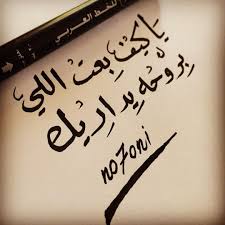 للخط العربي
ياكيف بعت اللي
بروحه يداريك
no7oni